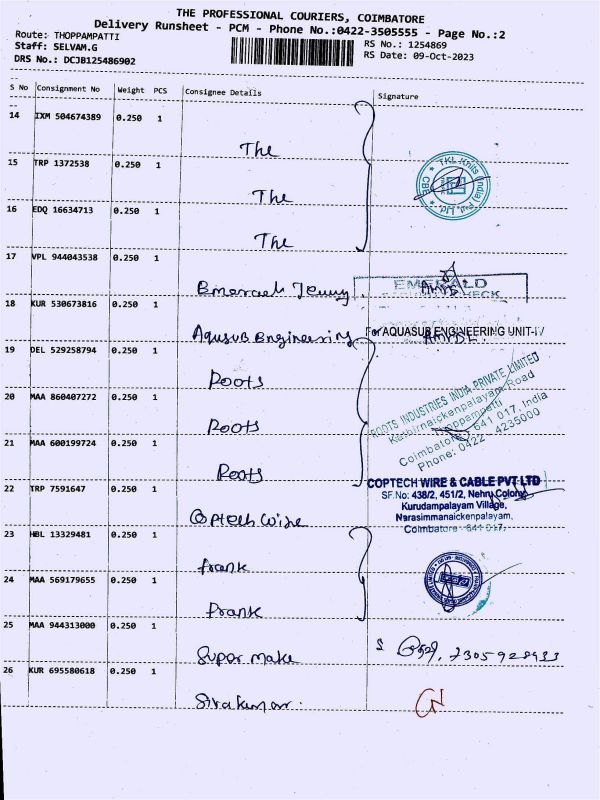 THE PROFESSIONAL COURIERS, COIMBATORE
Delivery Runsheet - PCM - Phone No.:0422-3505555 - Page No.:2
Route: THOPPAMPATTI
Staff: SELVAM.G
DRS No.: DCJB125486902
RS No.: 1254869
RS Date: 09-Oct-2023
S No Consignment No Weight PCS Consignee Details Signature
14 IXM 504674389 0.250 1
The
15 TRP 1372538 0.250 1
The
TKL Knits (India) Pvt. Ltd
CBE
16 EDQ 16634713 0.250 1
The
17 VPL 944043538 0.250 1
EMERALD
18 KUR 530673816 0.250 1
Aqusub Engineering
For AQUASUB ENGINEERING UNIT-IV
19 DEL 529258794 0.250 1
Roots
ROOTS INDUSTRIES INDIA PRIVATE LIMITED
Kathirnaickenpalayam Road
Thoppampatti
Coimbatore - 641 017, India
Phone: 0422 - 4235000
20 MAA 860407272 0.250 1
Roots
21 MAA 600199724 0.250 1
Roots
COPTECH WIRE & CABLE PVT LTD
SF.No: 438/2, 451/2, Nehru Colony,
Kurudampalayam Village,
Narasimmanaickenpalayam,
Coimbatore - 641 017.
22 TRP 7591647 0.250 1
Coptech Wire
23 HBL 13329481 0.250 1
frank
24 MAA 569179655 0.250 1
Prank
25 MAA 944313000 0.250 1
Super make
26 KUR 695580618 0.250 1
Sivakumar.